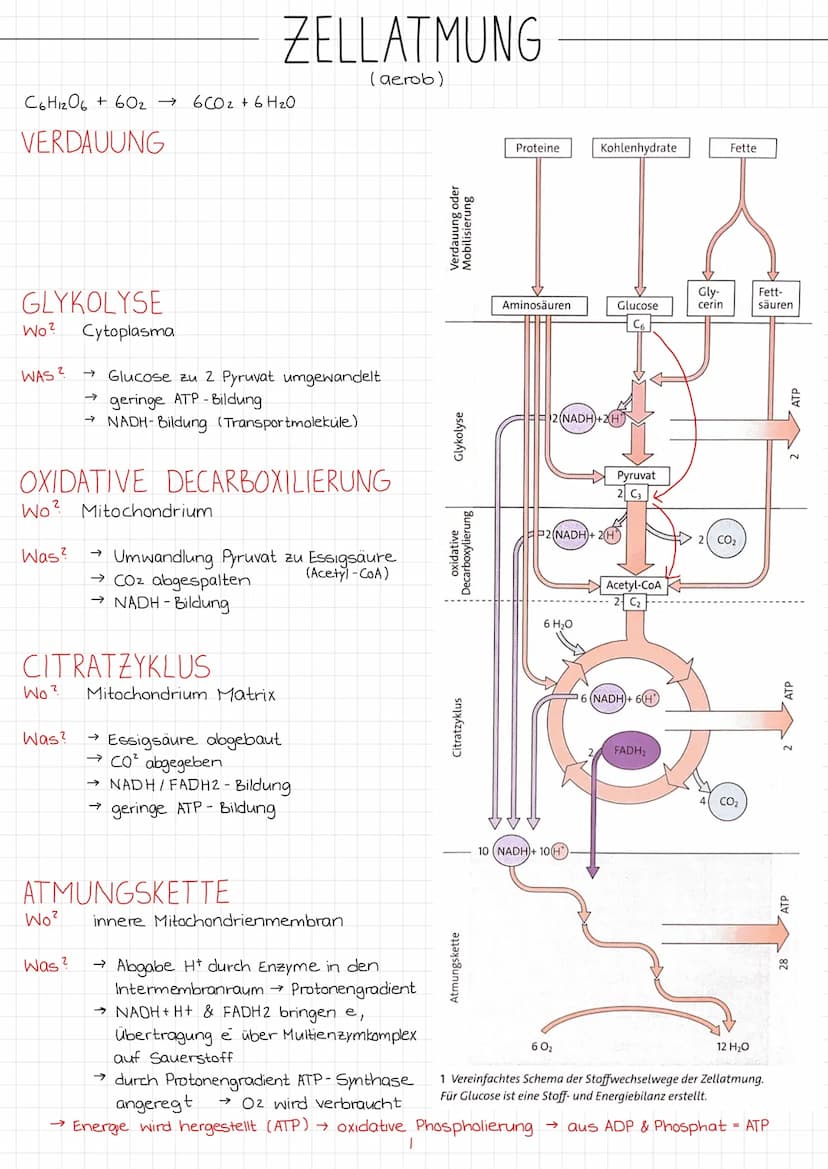 ZELLATMUNG
(aerob)
C6H12O6 + 6O2 → 6CO2 + 6H2O
VERDAUUNG
GLYKOLYSE
Wo? Cytoplasma
WAS? → Glucose zu 2 Pyruvat umgewandelt
→ geringe ATP-Bildung
→ NADH-Bildung (Transportmoleküle)
OXIDATIVE DECARBOXILIERUNG
Wo? Mitochondrium
Was? → Umwandlung Pyruvat zu Essigsäure
(Acetyl-CoA)
→ CO2 abgespalten
→ NADH-Bildung
CITRATZYKLUS
Wo? Mitochondrium Matrix
Was? → Essigsäure abgebaut
→ CO² abgegeben
→ NADH/FADH2-Bildung
→ geringe ATP-Bildung
ATMUNGSKETTE
Wo? innere Mitochondrienmembran
Was? → Abgabe H+ durch Enzyme in den
Intermembranraum → Protonengradient
→ NADH+H+ & FADH2 bringen e,
Übertragung e- über Multienzymkomplex
auf Sauerstoff
→ durch Protonengradient ATP-Synthase
angeregt → O2 wird verbraucht
→ Energie wird hergestellt (ATP) → oxidative Phospholierung → aus ADP & Phosphat = ATP
1
Proteine Kohlenhydrate Fette
Verdauung oder
Mobilisierung
Aminosäuren Glucose Gly-
cerin Fett-
säuren
C6
Glykolyse
2 NADH + 2 H+
2 ATP
Pyruvat
2 C3
oxidative
Decarboxylierung
2 NADH + 2 H+
2 CO2
Acetyl-CoA
2 C2
6 H2O
Citratzyklus
6 NADH + 6 H+
2 FADH2
2 ATP
4 CO2
10 NADH + 10 H+
Atmungskette
28 ATP
6 O2 12 H2O
1 Vereinfachtes Schema der Stoffwechselwege der Zellatmung.
Für Glucose ist eine Stoff- und Energiebilanz erstellt.